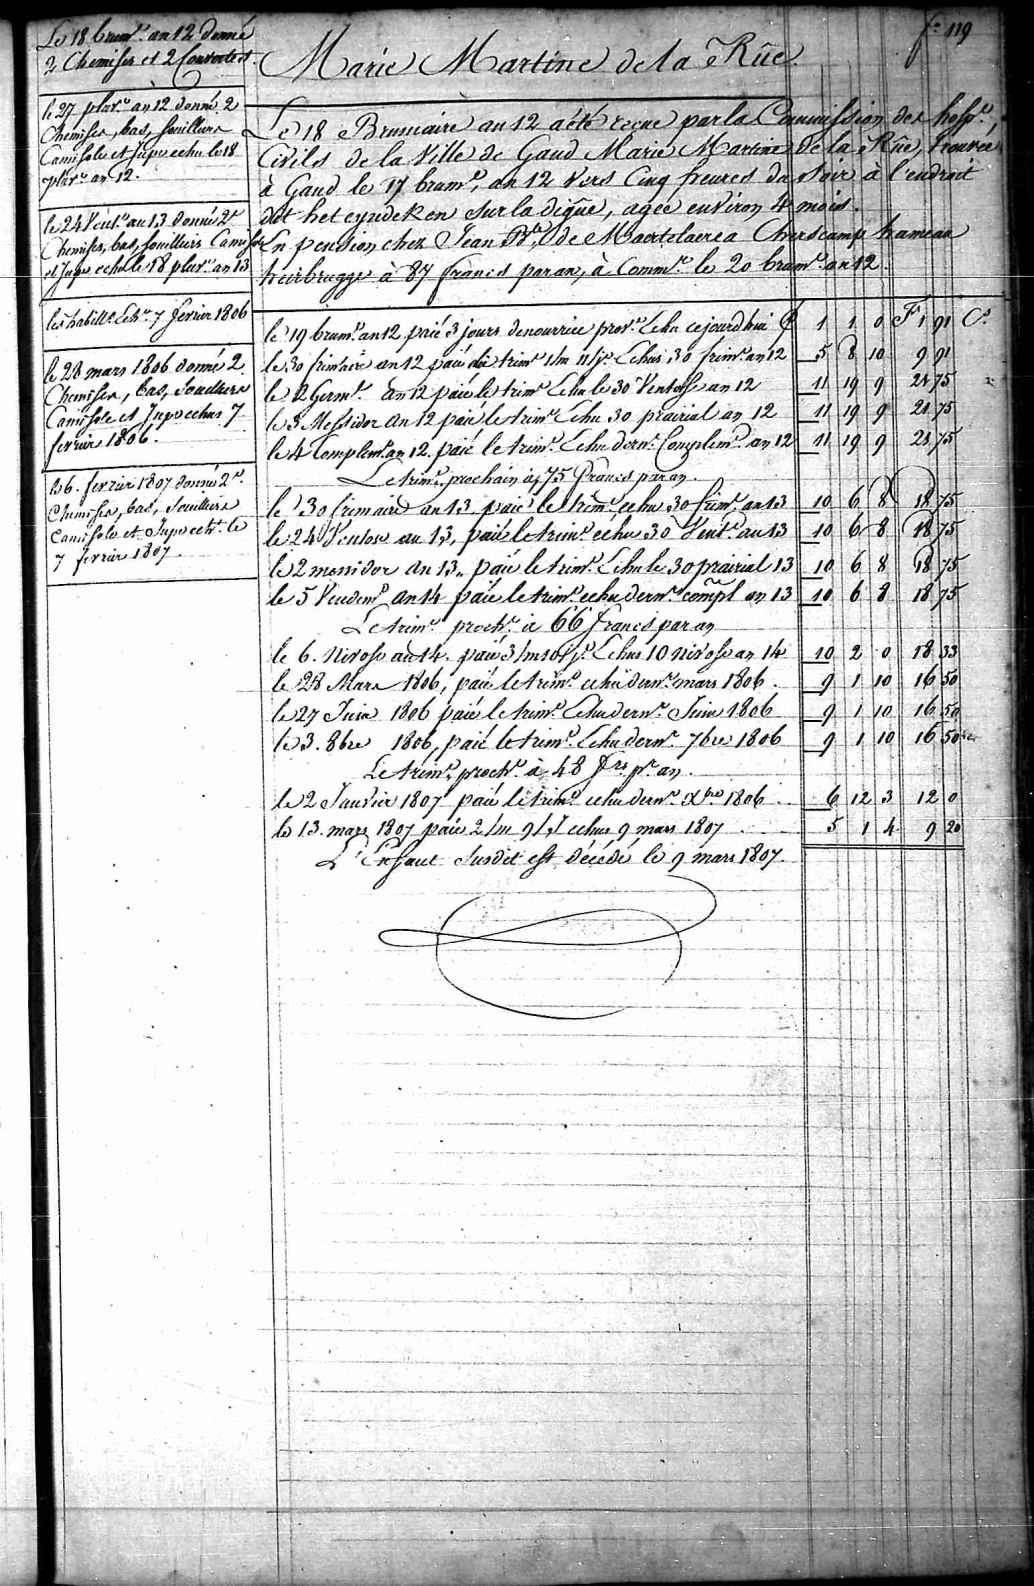 fo 119
Le 18 brumre an 12 donné
2 Chemises et 2 Couvertes.
le 27 pluve an 12 donné 2
Chemises, bas, souilliers
Camisole et Jupe echu le 18
pluve an 12.
le 24 Vent. an 13 donné 2e
Chemises, bas, souilliers Camisole
et Jupe echu le 18 pluve an 13
les habillts Echs 7 fevrier 1806
le 28 mars 1806 donné 2
Chemises, bas, Soulliers
Camisole et Jupe echus 7
fevrier 1806.
le 6. fevrier 1807 donné 2e
Chemises, bas, souilliers
Camisole et Jupe echs le
7 fevrier 1807.
Marie Martine de la Rûe
Le 18 Brumaire an 12 a été reçue par la Commission des hospes
Civils de la Ville de Gand Marie Martine de la Rûe, trouvée
à Gand le 17 brume, an 12 Vers Cinq heures du Soir à l'endroit
dit het eyndeken sur la digue, agée environ 4 mois.
En pension chez Jean Bte de Maertelaere a Cherscamp hameau
heirbrugge à 87 francs par an, à Commr le 20 brumr an 12.
le 19 brumr an 12 paié 3 jours de nourrice provre Echu cejourdhui 1 1 0 Fs 1 91 Cs
le 30 frimaire an 12 paié du trimre 1/m 11/js Echus 30 frimre an 12 5 8 10 9 91
le 2 Germl an 12 paié le trimre Echu le 30 Ventose an 12 11 19 9 21 75
le 3 Messidor an 12 paié le trimre Echu 30 prairial an 12 11 19 9 21 75
le 4 Complemre an 12 paié le trimre Echu dernr Complemre an 12 11 19 9 21 75
Le trimre prochain à 75 francs par an.
le 30 frimaire an 13 paié le trimre echu 30 frimre an 13 10 6 8 18 75
le 24 Ventose an 13, paié le trimre echu 30 Vente an 13 10 6 8 18 75
le 2 messidor an 13, paié le trimre Echu le 30 prairial 13 10 6 8 18 75
le 5 Vendemre an 14 paié le trimre echu dernr compl an 13 10 6 8 18 75
Le trimre prochr à 66 francs par an
le 6. Nivose an 14. paié 3/m 10/js Echus 10 nivose an 14 10 2 0 18 33
le 28 Mars 1806, paié le trimre echu dernr mars 1806. 9 1 10 16 50
le 27 Juin 1806 paié le trimre Echu dernr Juin 1806 9 1 10 16 50
le 3. 8bre 1806, paié le trimre Echu dernr 7bre 1806 9 1 10 16 50
Le trimre prochr à 48 frs pr an.
le 2 Janvier 1807 paié le trimre echu dernr Xbre 1806. 6 12 3 12 0
le 13. mars 1807 paié 2/m 9/J echus 9 mars 1807 5 1 4 9 20
L'Enfant Susdit est décédé le 9 mars 1807